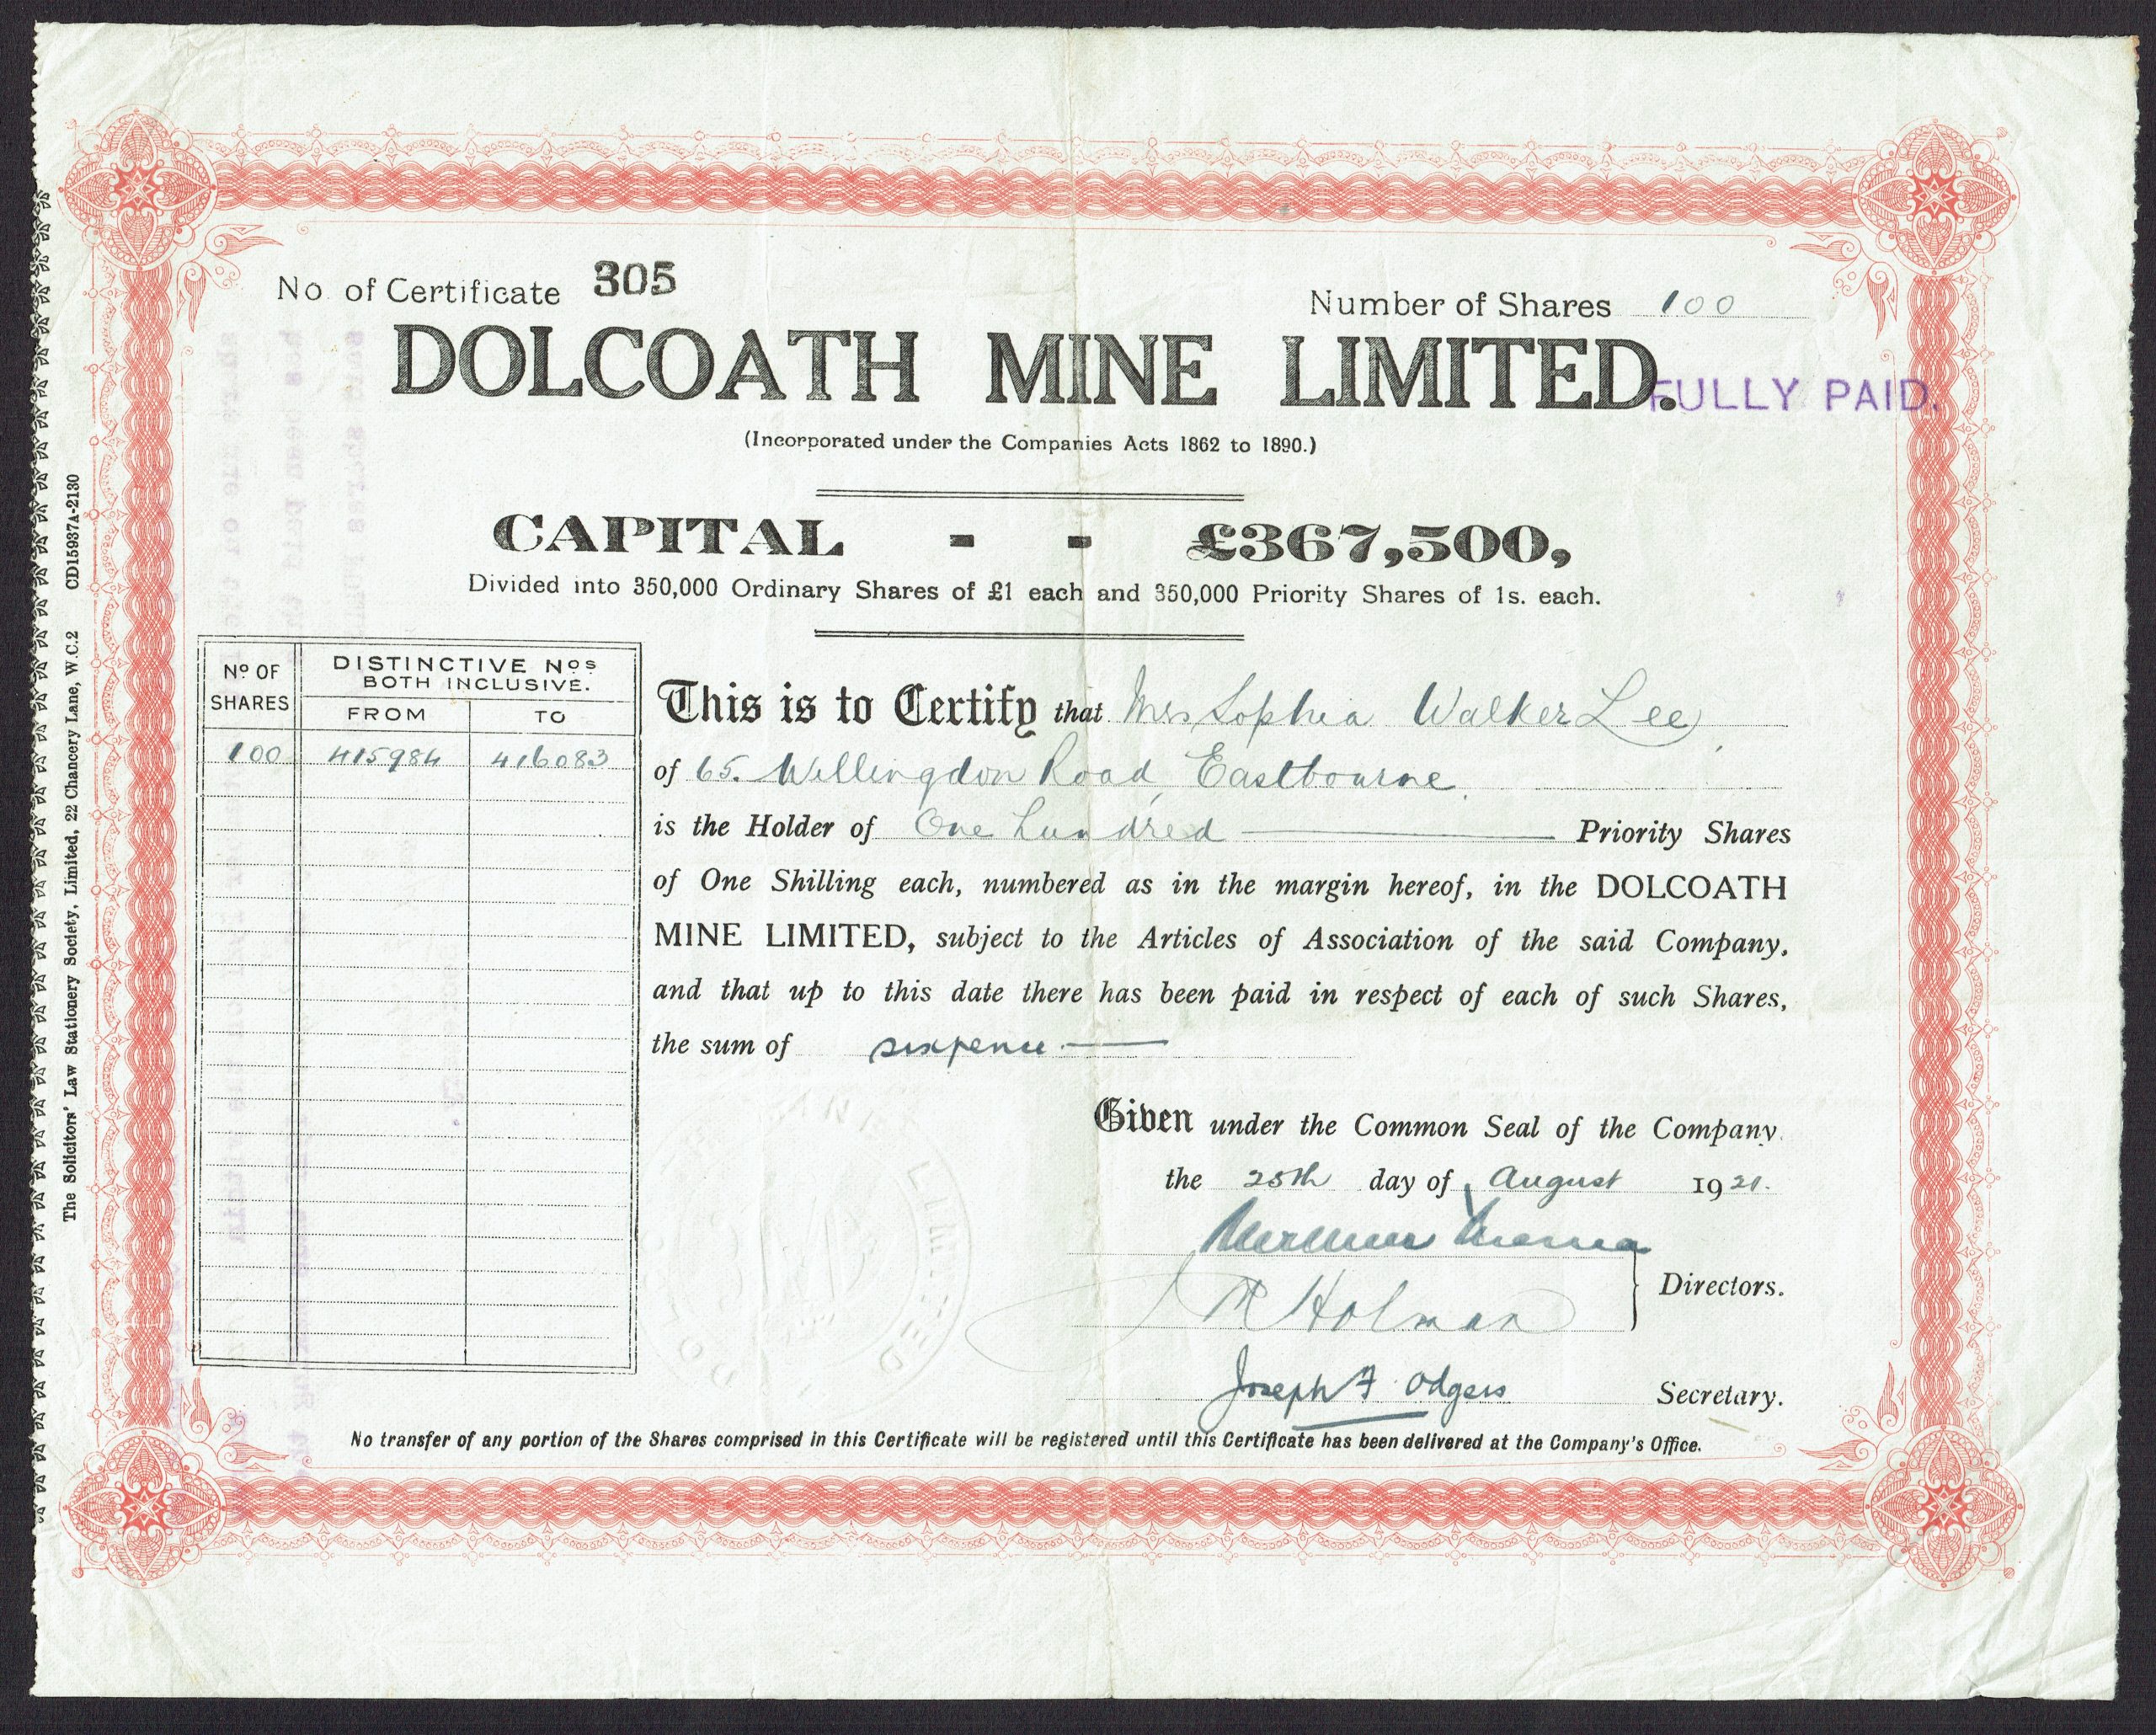 No. of Certificate 305
Number of Shares 100
DOLCOATH MINE LIMITED.
FULLY PAID.
(Incorporated under the Companies Acts 1862 to 1890.)
CAPITAL - - £367,500,
Divided into 350,000 Ordinary Shares of £1 each and 350,000 Priority Shares of 1s. each.
Nº OF SHARES
DISTINCTIVE Nos BOTH INCLUSIVE.
FROM TO
100 415984 416083
This is to Certify that Mrs Sophia Walker Lee
of 65. Willingdon Road, Eastbourne.
is the Holder of One hundred Priority Shares
of One Shilling each, numbered as in the margin hereof, in the DOLCOATH
MINE LIMITED, subject to the Articles of Association of the said Company,
and that up to this date there has been paid in respect of each of such Shares,
the sum of sixpence
Given under the Common Seal of the Company
the 25th day of August 1921.
R Holman
Directors.
Joseph F Odgers
Secretary.
No transfer of any portion of the Shares comprised in this Certificate will be registered until this Certificate has been delivered at the Company's Office.
The Solicitors' Law Stationery Society, Limited, 22 Chancery Lane, W.C.2 CD15937A-2130
LIMITED